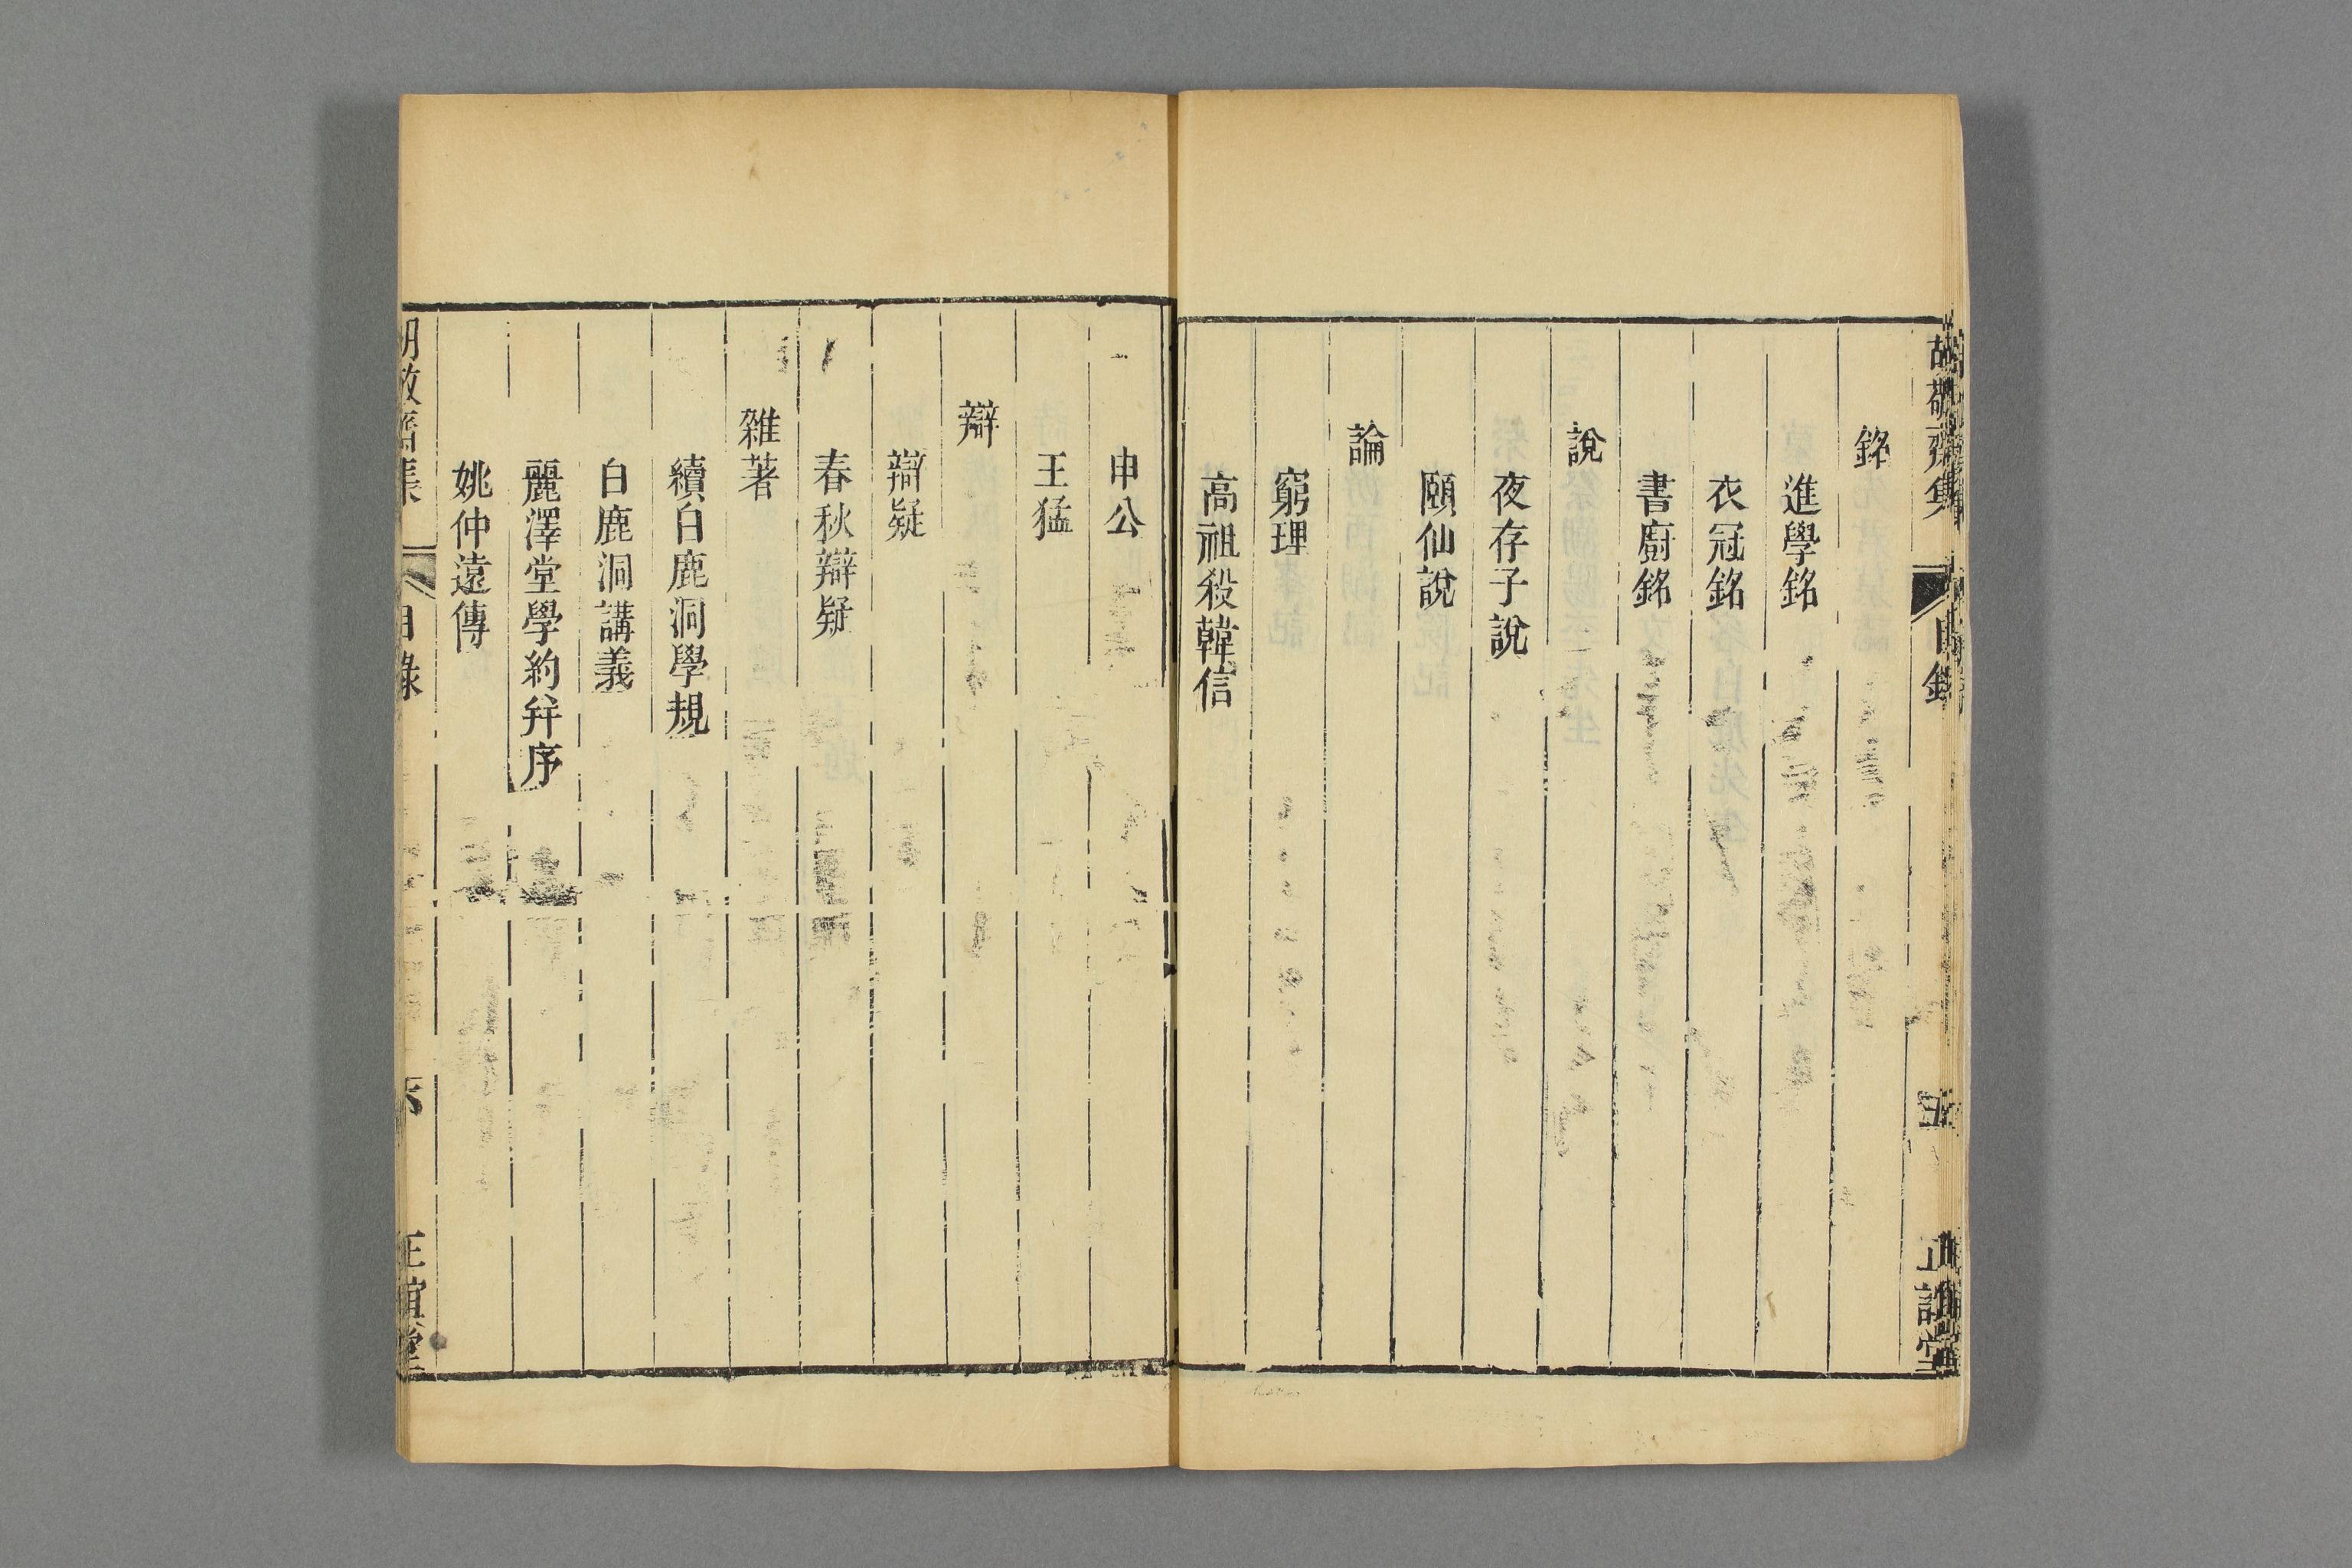 胡敬齋集
目錄
五
正誼堂
銘
進學銘
衣冠銘
書廚銘
說
夜存子說
頤仙說
論
窮理
高祖殺韓信
申公
王猛
辯
辯疑
春秋辯疑
雜著
續白鹿洞學規
白鹿洞講義
麗澤堂學約幷序
姚仲遠傳
胡敬齋集
目錄
六
正誼堂